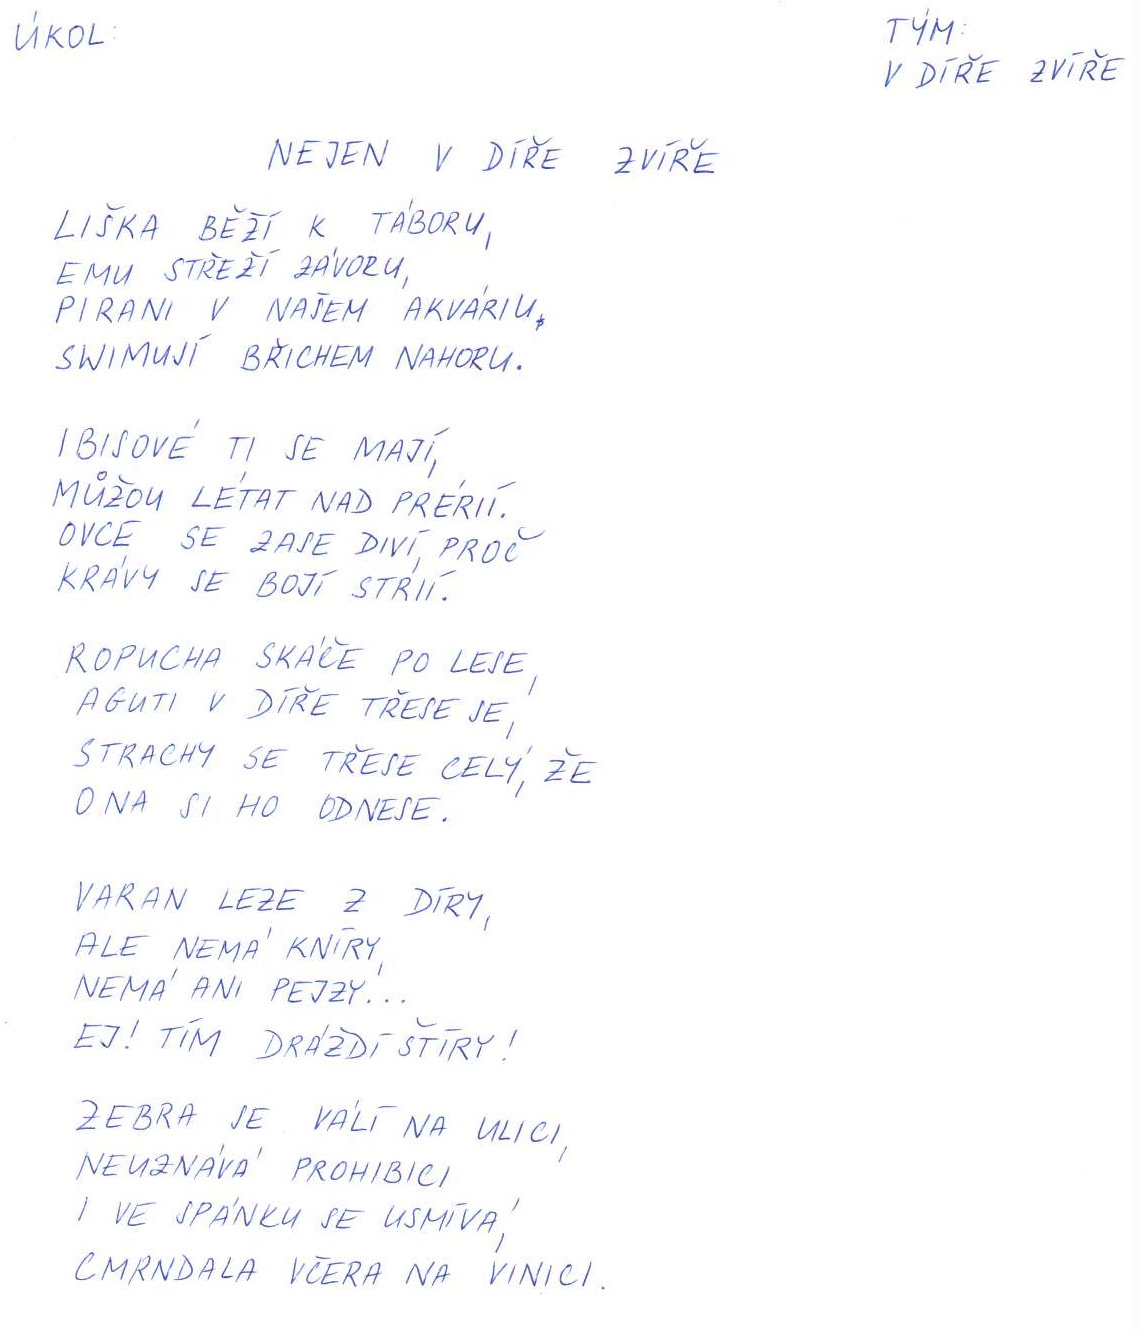 ÚKOL:
TÝM:
V DÍŘE ZVÍŘE
NEJEN V DÍŘE ZVÍŘE
LIŠKA BĚŽÍ K TÁBORU,
EMU STŘEŽÍ ZÁVORU,
PIRANI V NAŠEM AKVÁRIU,
SWIMUJÍ BŘICHEM NAHORU.
IBISOVÉ TI SE MAJÍ,
MŮŽOU LÉTAT NAD PRÉRIÍ.
OVCE SE ZASE DIVÍ, PROČ
KRÁVY SE BOJÍ STRIÍ.
ROPUCHA SKÁČE PO LESE,
AGUTI V DÍŘE TŘESE SE,
STRACHY SE TŘESE CELÝ, ŽE
ONA SI HO ODNESE.
VARAN LEZE Z DÍRY,
ALE NEMÁ KNÍRY,
NEMÁ ANI PEJZY...
EJ! TÍM DRÁŽDÍ ŠTÍRY!
ZEBRA SE VÁLÍ NA ULICI,
NEUZNÁVÁ PROHIBICI
I VE SPÁNKU SE USMÍVÁ,
CMRNDALA VČERA NA VINICI.